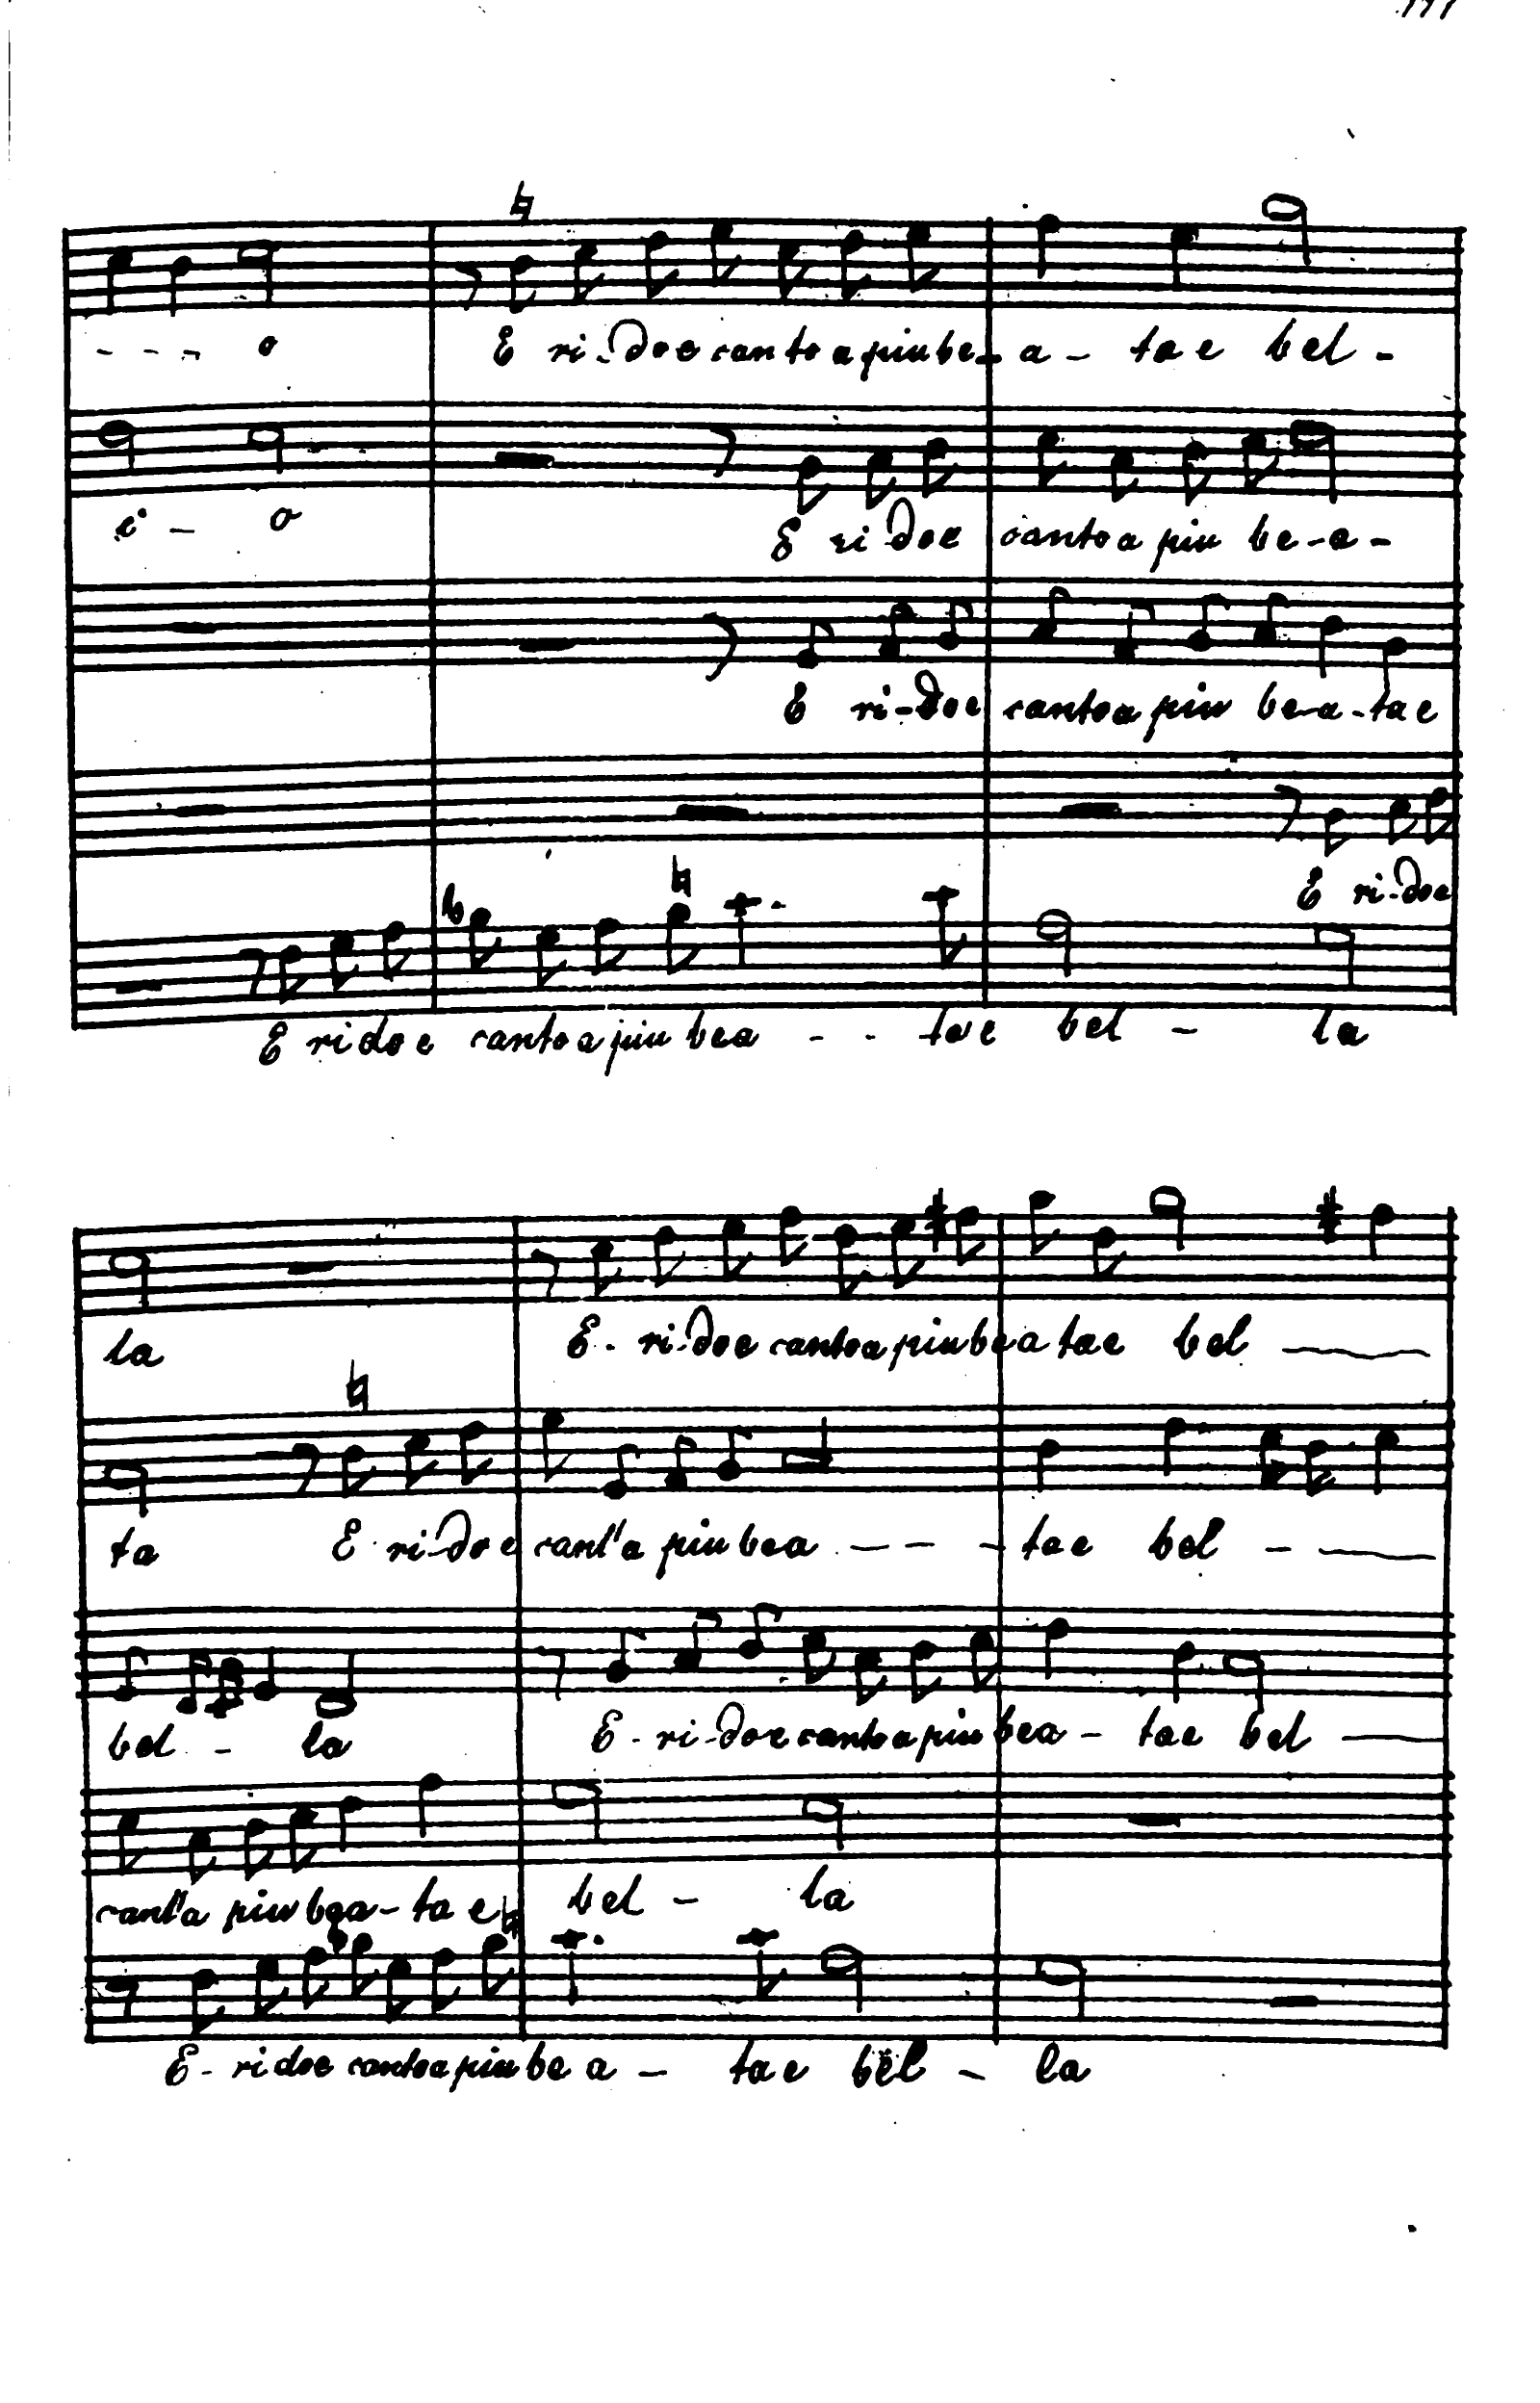 - - - o E ri - do e canto a piu be - a - ta e bel -
i - o E ri do e canto a piu be - a -
E ri - do e canto a piu be - a - ta e
E ri - do e
E ri do e canto a piu bea - - ta e bel - la
la E - ri - do e canto a piu bea ta e bel
ta E ri - do e cant'a piu bea - - - ta e bel -
bel - la E - ri - do e canto a piu bea - ta e bel
cant'a piu bea - ta e bel - la
E - ri do e canto a piu be a - ta e bel - la